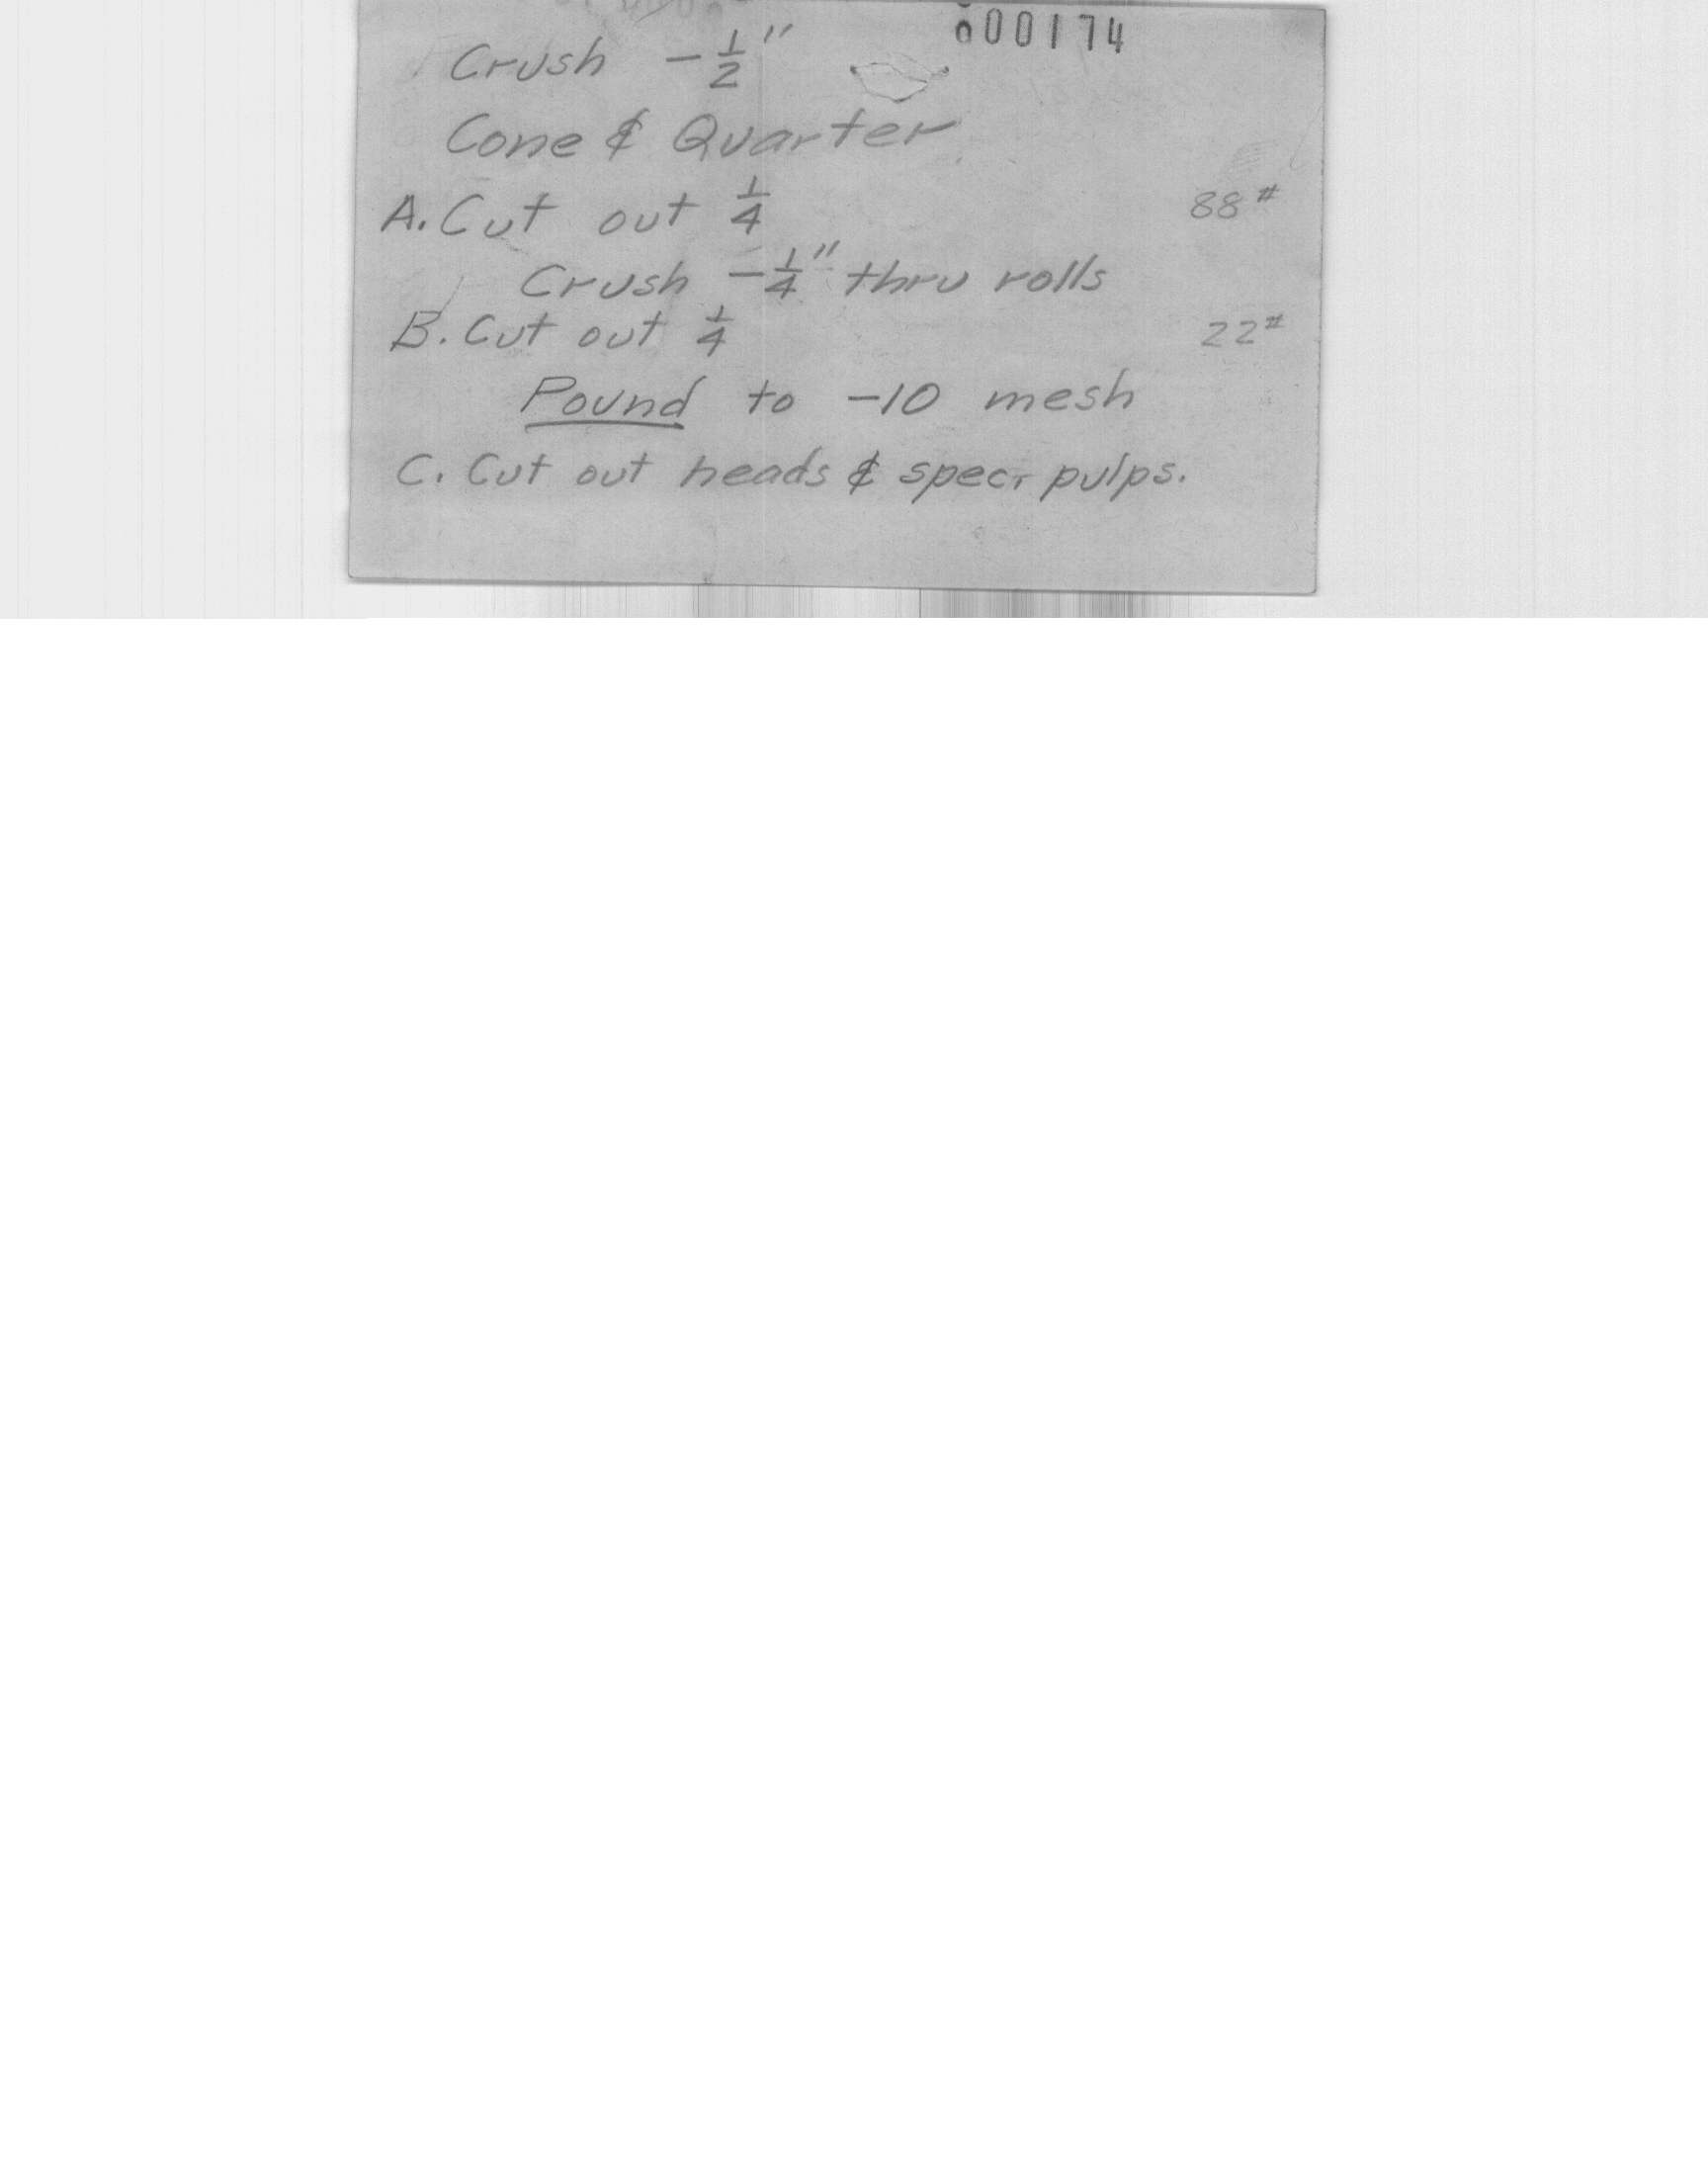 000174
Crush -1/2"
Cone & Quarter
A. Cut out 1/4 88#
Crush -1/4" thru rolls
B. Cut out 1/4 22#
Pound to -10 mesh
C. Cut out heads & spec. pulps.